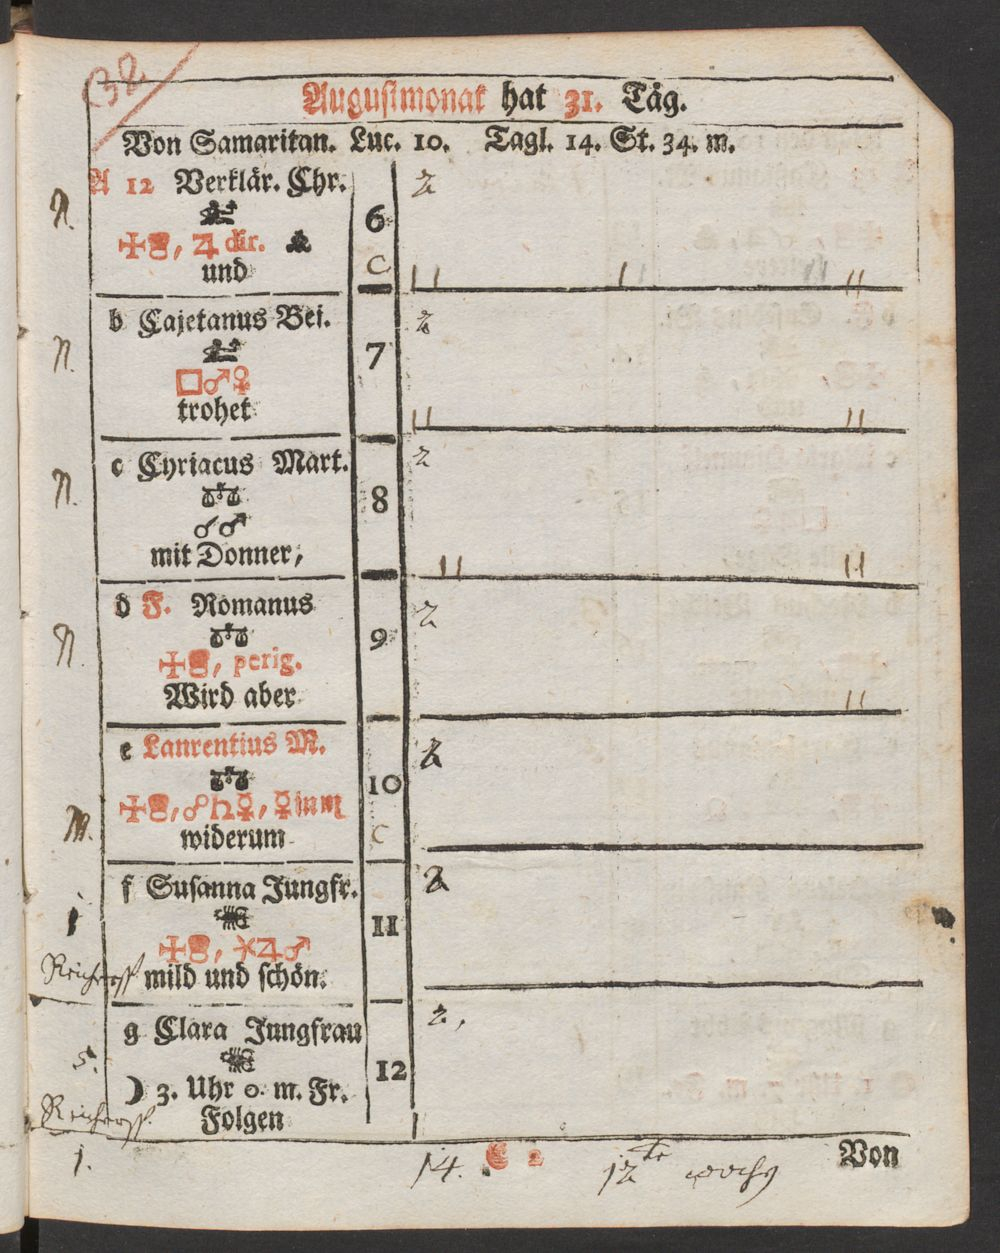 32
Augustmonat hat 31. Täg.
Von Samaritan. Luc. 10. Tagl. 14. St. 34. m.
A 12 Verklär. Chr. 6 2
N.
♃ dir. C
und
b Cajetanus Bei. 7 2
N.
□♂♀
trohet
c Cyriacus Mart. 8 2
N.
☌♂
mit Donner,
d F. Romanus 9 2
N.
perig.
Wird aber
e Laurentius M. 10 2
☍♄☿, ☿ in ♏
M. widerum C
f Susanna Jungfr. 11 2
1
⚹♃♂
mild und schön.
g Clara Jungfrau 12 2.
5.
☽ 3. Uhr 0. m. Fr.
Folgen
1. 14. C 2 12te woch Von